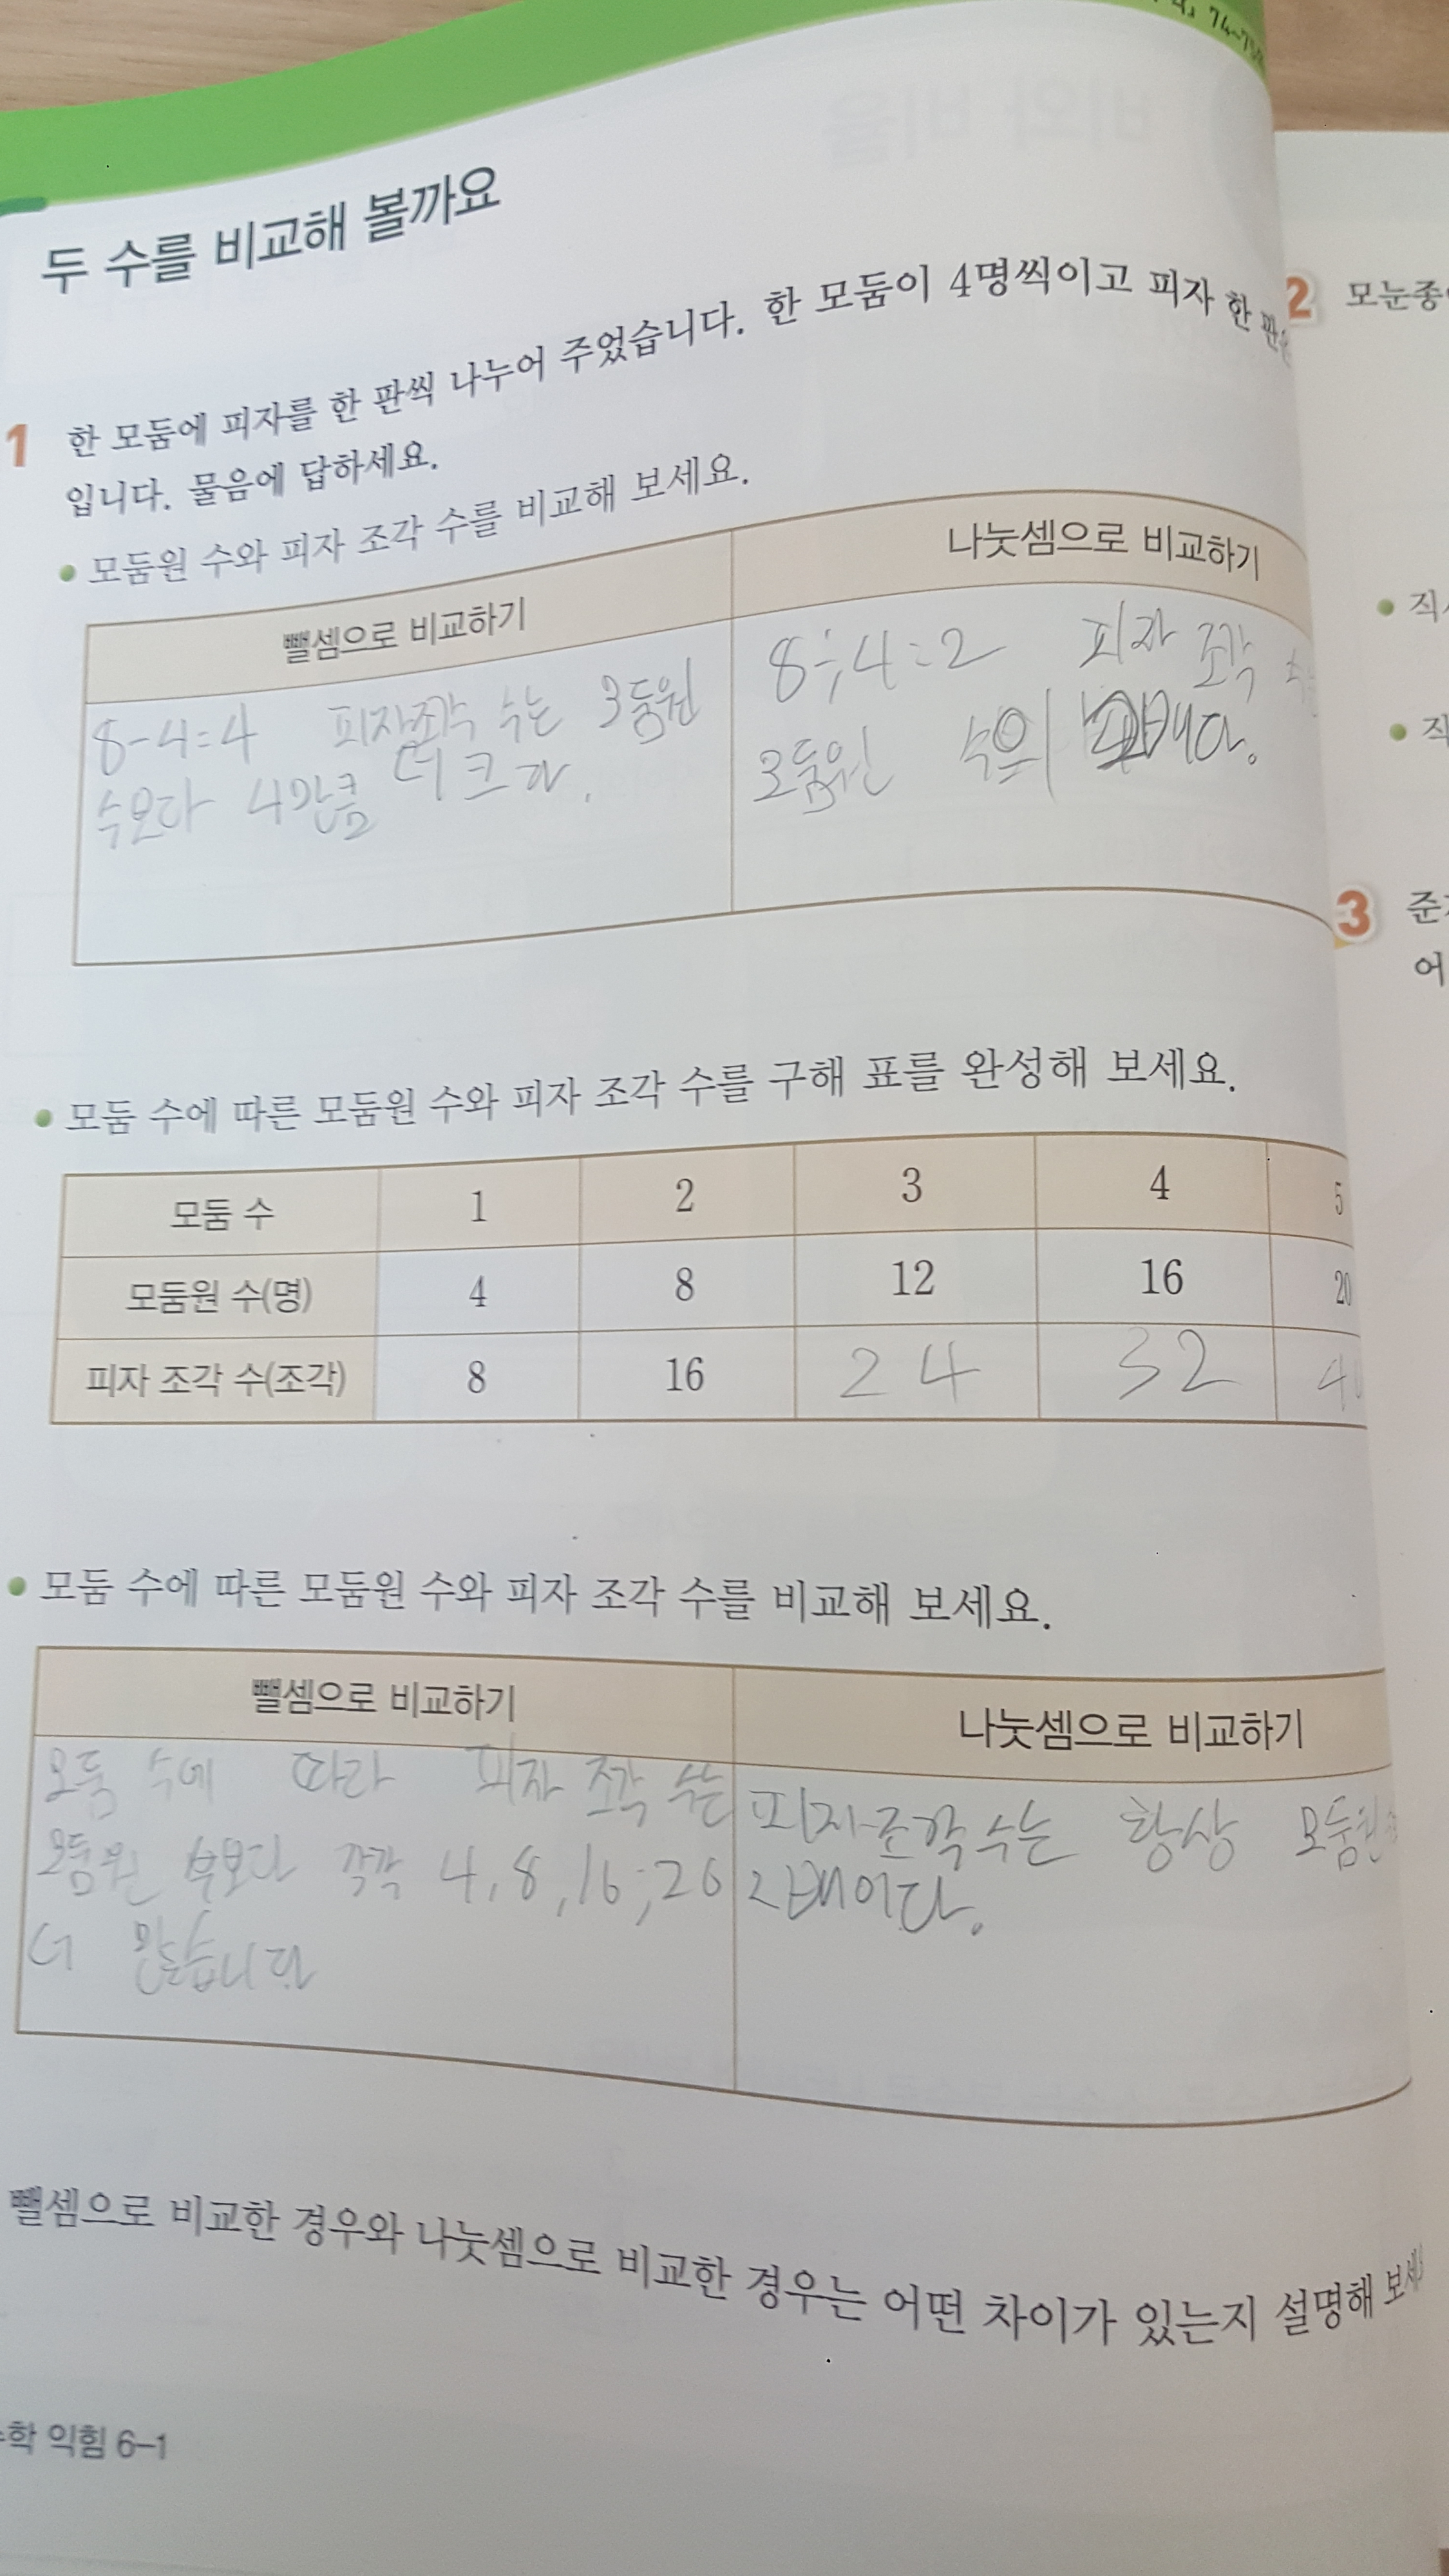 74~75
두 수를 비교해 볼까요
1 한 모둠에 피자를 한 판씩 나누어 주었습니다. 한 모둠이 4명씩이고 피자 한 판은
입니다. 물음에 답하세요.
• 모둠원 수와 피자 조각 수를 비교해 보세요.
뺄셈으로 비교하기
나눗셈으로 비교하기
8-4=4 피자조각 수는 모둠원
수보다 4만큼 더 크다.
8÷4=2 피자 조각 수는
모둠원 수의 2배다.
• 모둠 수에 따른 모둠원 수와 피자 조각 수를 구해 표를 완성해 보세요.
모둠 수 1 2 3 4 5
모둠원 수(명) 4 8 12 16 20
피자 조각 수(조각) 8 16 24 32 40
• 모둠 수에 따른 모둠원 수와 피자 조각 수를 비교해 보세요.
뺄셈으로 비교하기
나눗셈으로 비교하기
모둠 수에 따라 피자 조각 수는
모둠원 수보다 각각 4, 8, 16, 20
더 많습니다
피자조각수는 항상 모둠원
2배이다.
뺄셈으로 비교한 경우와 나눗셈으로 비교한 경우는 어떤 차이가 있는지 설명해 보세
수학 익힘 6-1
2 모눈종
• 직
• 직
3 준
어